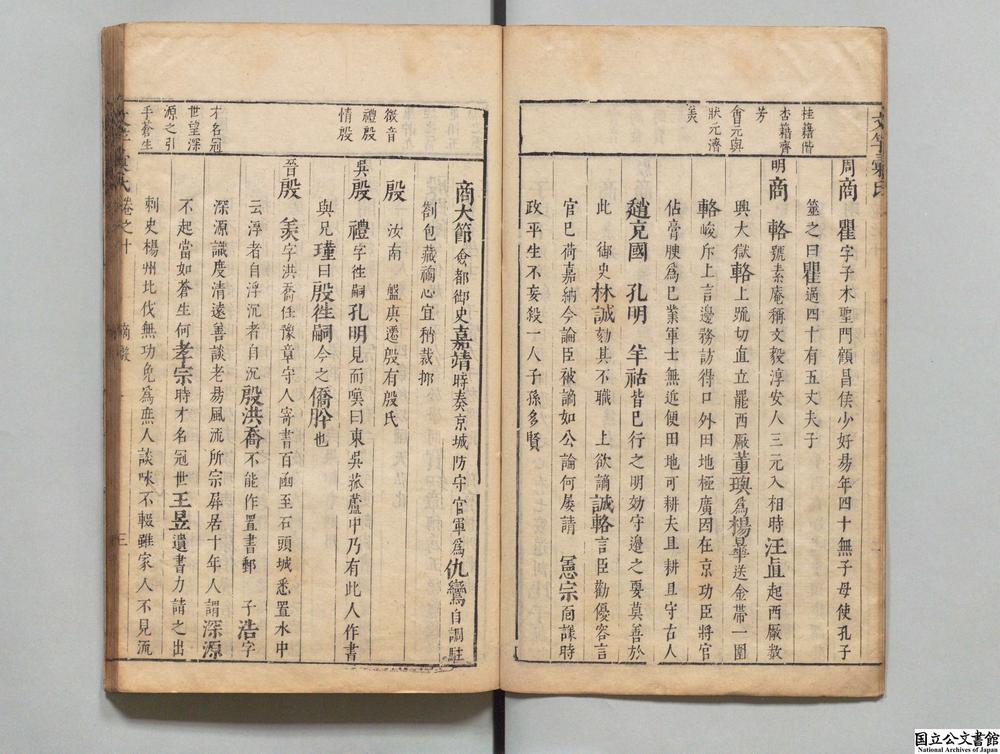 桂籍偕
杏籍齊
芳
會元與
狀元濟
美
周商 瞿字子木聖門顧昌俟少好易年四十無子母使孔子
筮之曰瞿過四十有五丈夫子
明商 輅號素庵稱文毅淳安人三元入相時汪直起西厰數
興大獄輅上䟽切直立罷西厰董璵爲楊曅送金帶一圍
輅峻斥上言邊務訪得口外田地極廣因在京功臣將官
佔膏腴爲巳業軍士無近便田地可耕夫且耕且守古人
趙充國 孔明 羊祜皆巳行之明効守邊之要莫善於
此 御史林誠劾其不職 上欲謫誠輅言臣勸優容言
官巳荷嘉納今論臣被謫如公論何屡請 憲宗 時
政平生不妄殺一人子孫多賢
徽音
禮殷
情殷
才名冠
世望深
源之引
手蒼生
商大節僉都御史嘉靖時奏京城防守官軍爲仇鸞自調駐
劄包藏禍心宜稍裁抑
殷 汝南 盤庚遷殷有殷氏
吳殷 禮字徃嗣孔明見而嘆曰東吳菰蘆中乃有此人作書
與兄瑾曰殷徃嗣今之僑肸也
晉殷 羡字洪喬任豫章守人寄書百函至石頭城悉置水中
云浮者自浮沉者自沉殷洪喬不能作置書郵 子浩字
深源識度清遠善談老易風流所宗屏居十年人謂深源
不起當如蒼生何孝宗時才名冠世王昱遺書力請之出
刺史楊州北伐無功免爲庶人談咏不輟雖家人不見流
卷之十
三
国立公文書館
National Archives of Japan